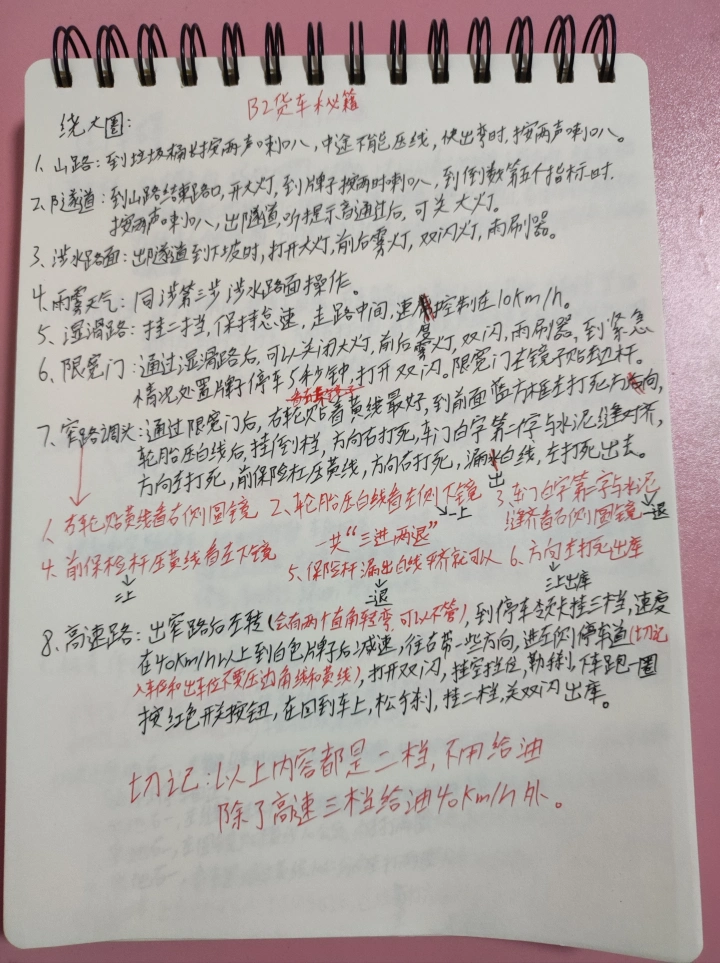 B2货车秘籍
绕大圈：
1、山路：到垃圾桶长按两声喇叭，中途不能压线，快出弯时，按两声喇叭。
2、隧道：到山路结束路口，开大灯，到牌子按两时喇叭，到倒数第五个指标时，
按两声喇叭，出隧道，听提示音通过后，可关大灯。
3、涉水路面：出隧道到下坡时，打开大灯，前后雾灯，双闪灯，雨刷器。
4、雨雾天气：同涉第三步涉水路面操作。
5、湿滑路：挂二挡，保持怠速，走路中间，速度控制在10km/h。
6、限宽门：通过湿滑路后，可以关闭大灯，前后雾灯，双闪，雨刷器，到紧急
情况处置牌子停车5秒钟，打开双闪。限宽门左镜子贴边杆。
7、窄路调头：通过限宽门后，右轮贴着黄线最好，到前面蓝方框左打死方向，
轮胎压白线后，挂倒档，方向右打死，车门白字第二字与水泥缝对齐，
方向左打死，前保险杠压黄线，方向右打死，漏出白线，左打死出去。
1、右轮贴黄线看右侧圆镜 2、轮胎压白线看左侧下镜 3、车门白字第二字与水泥
一上 缝齐看右侧圆镜 一退
4、前保险杆压黄线看左下镜 一共“三进两退”
二上 5、保险杆漏出白线平齐就可以 6、方向左打死出库
二退 三上出库
8、高速路：出窄路后左转（会有两个直角转弯，可以不管），到停车支挂三档，速度
在40km/h以上到白色牌子后减速，往右带一些方向，进左侧停车道（切记
入车位和出车位不要压边角线和黄线），打开双闪，挂空挡位，勒手刹，下车跑一圈
按红色开关按钮，在回到车上，松手刹，挂二档，关双闪出库。
切记：以上内容都是二档，不用给油
除了高速三档给油40km/h外。